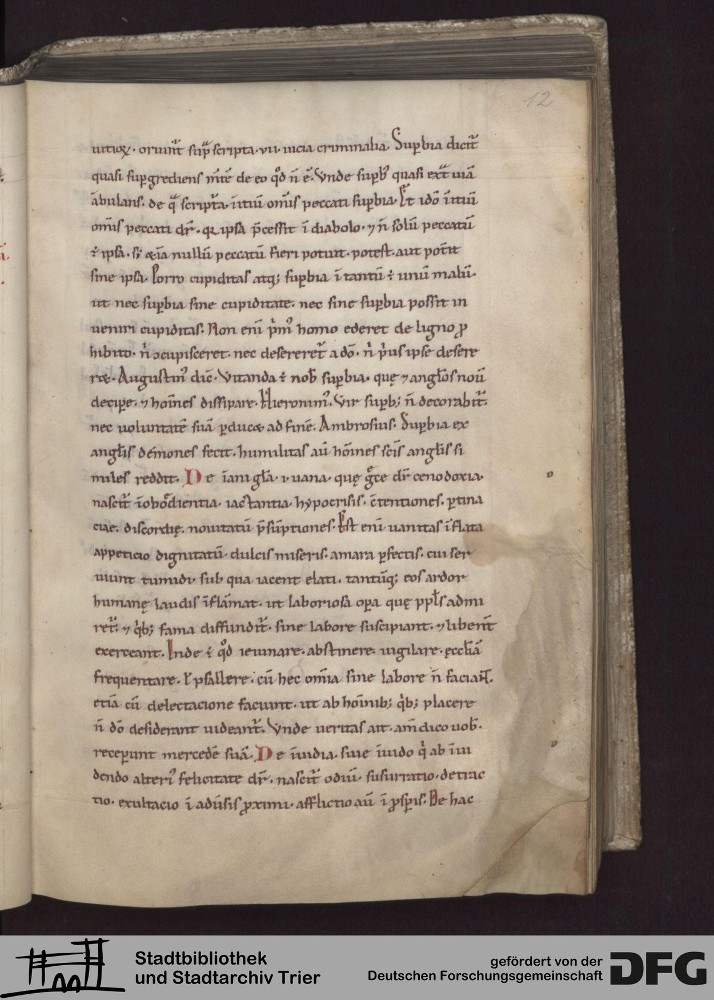 12
uitioꝝ. oriunt᷑ sup͛scripta .vii. uicia criminalia. Suꝑbia dicit᷑
quasi suꝑgrediens m̅te̅ de eo qd̅ n̅ e̅. Vnde suꝑb᷒ quasi ext᷑ uia̅
a̅bulans. de q̅ scripta. initiu̅ om̅is peccati suꝑbia. Et ido̅ initiu̅
om̅is peccati dr̅. qꝛ ipsa p̅cessit i̅ diabolo. ⁊ n̅ solu̅ peccatu̅
ipsa. s; nullu̅ peccatu̅ fieri potuit. potest. aut pot̅it
sine ipsa. Porro cupiditas atq; suꝑbia i̅ tantu̅ ÷ unu̅ malu̅.
ut nec suꝑbia sine cupiditate. nec sine suꝑbia possit in
ueniri cupiditas. Non eni̅ p̅m᷒ homo ederet de ligno ꝓ
hibito. n̅ ↄcupisceret. nec desereret᷑ a do̅. n̅ p̅us ipse desere
ret. Augustin᷒ dic̅. Vitanda ÷ nob̅ suꝑbia. quę ⁊ angl̅os nou̅
deciꝑe. ⁊ ho̅ines dissipare. Hieronim᷒. Vir suꝑb᷒; n̅ decorabit᷑.
nec uoluntate̅ sua̅ ꝑducet ad fine̅. Ambrosius. Suꝑbia ex
angl̅is demones fecit. humilitas au̅ ho̅ines sc̅is angl̅is si
miles reddit. De ina̅i gl̅a .i. uana. quę g̅ce dr̅ cenodoxia.
nascit᷑ i̅obo̅dientia. iactantia. hypocrisis. c̅tentiones. ꝑtina
ciae. discordię. nouitatu̅ p̅su̅ptiones. Est eni̅ uanitas i̅flata
appeticio dignitatu̅. dulcis miseris. amara ꝑfectis. cui ser
uiunt tumidi. sub qua iacent elati. tantu̅q; eos ardor
humanę laudis i̅fla̅mat. ut laboriosa oꝑa quę ppl̅s admi
ret᷑. ⁊ qͥb; fama diffundit᷑. sine labore suscipiant. ⁊ libent᷑
exerceant. Inde ÷ qd̅ ieiunare. abstinere. uigilare. eccl̅ia̅
frequentare. ł psallere. cu̅ hec om̅ia sine labore n̅ faciant.
etia̅ cu̅ delectacione faciunt. ut ab ho̅inib; qͥb; placere
n̅ do̅ desiderant uideant᷑. Vnde ueritas ait. am̅ dico uob̅.
receꝑunt mercede̅ sua̅. De i̅uidia. siue i̅uido qͥ ab i̅ui
dendo alteri᷒ felicitate dr̅. nascit᷑ odiu̅. susurratio. detrac
tio. exultacio i̅ adu̅sis ꝓximi. afflictio au̅ i̅ ꝓsꝑis. De hac
Stadtbibliothek
und Stadtarchiv Trier
gefördert von der
Deutschen Forschungsgemeinschaft
DFG